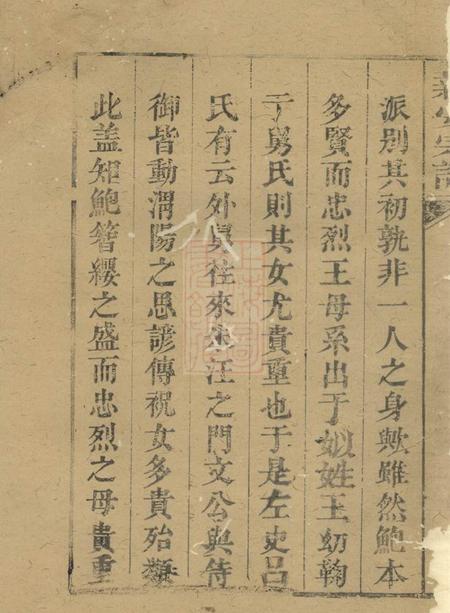 派別其初孰非一人之身歟雖然鮑本
多賢而忠烈王母系出于姒姓王幼鞠
于舅氏則其女尤貴重也于是左史呂
氏有云外舅往來朱汪之門文公與侍
御皆動渭陽之思諺傳祝女多貴殆類
此盖知鮑簪纓之盛而忠烈之母貴重